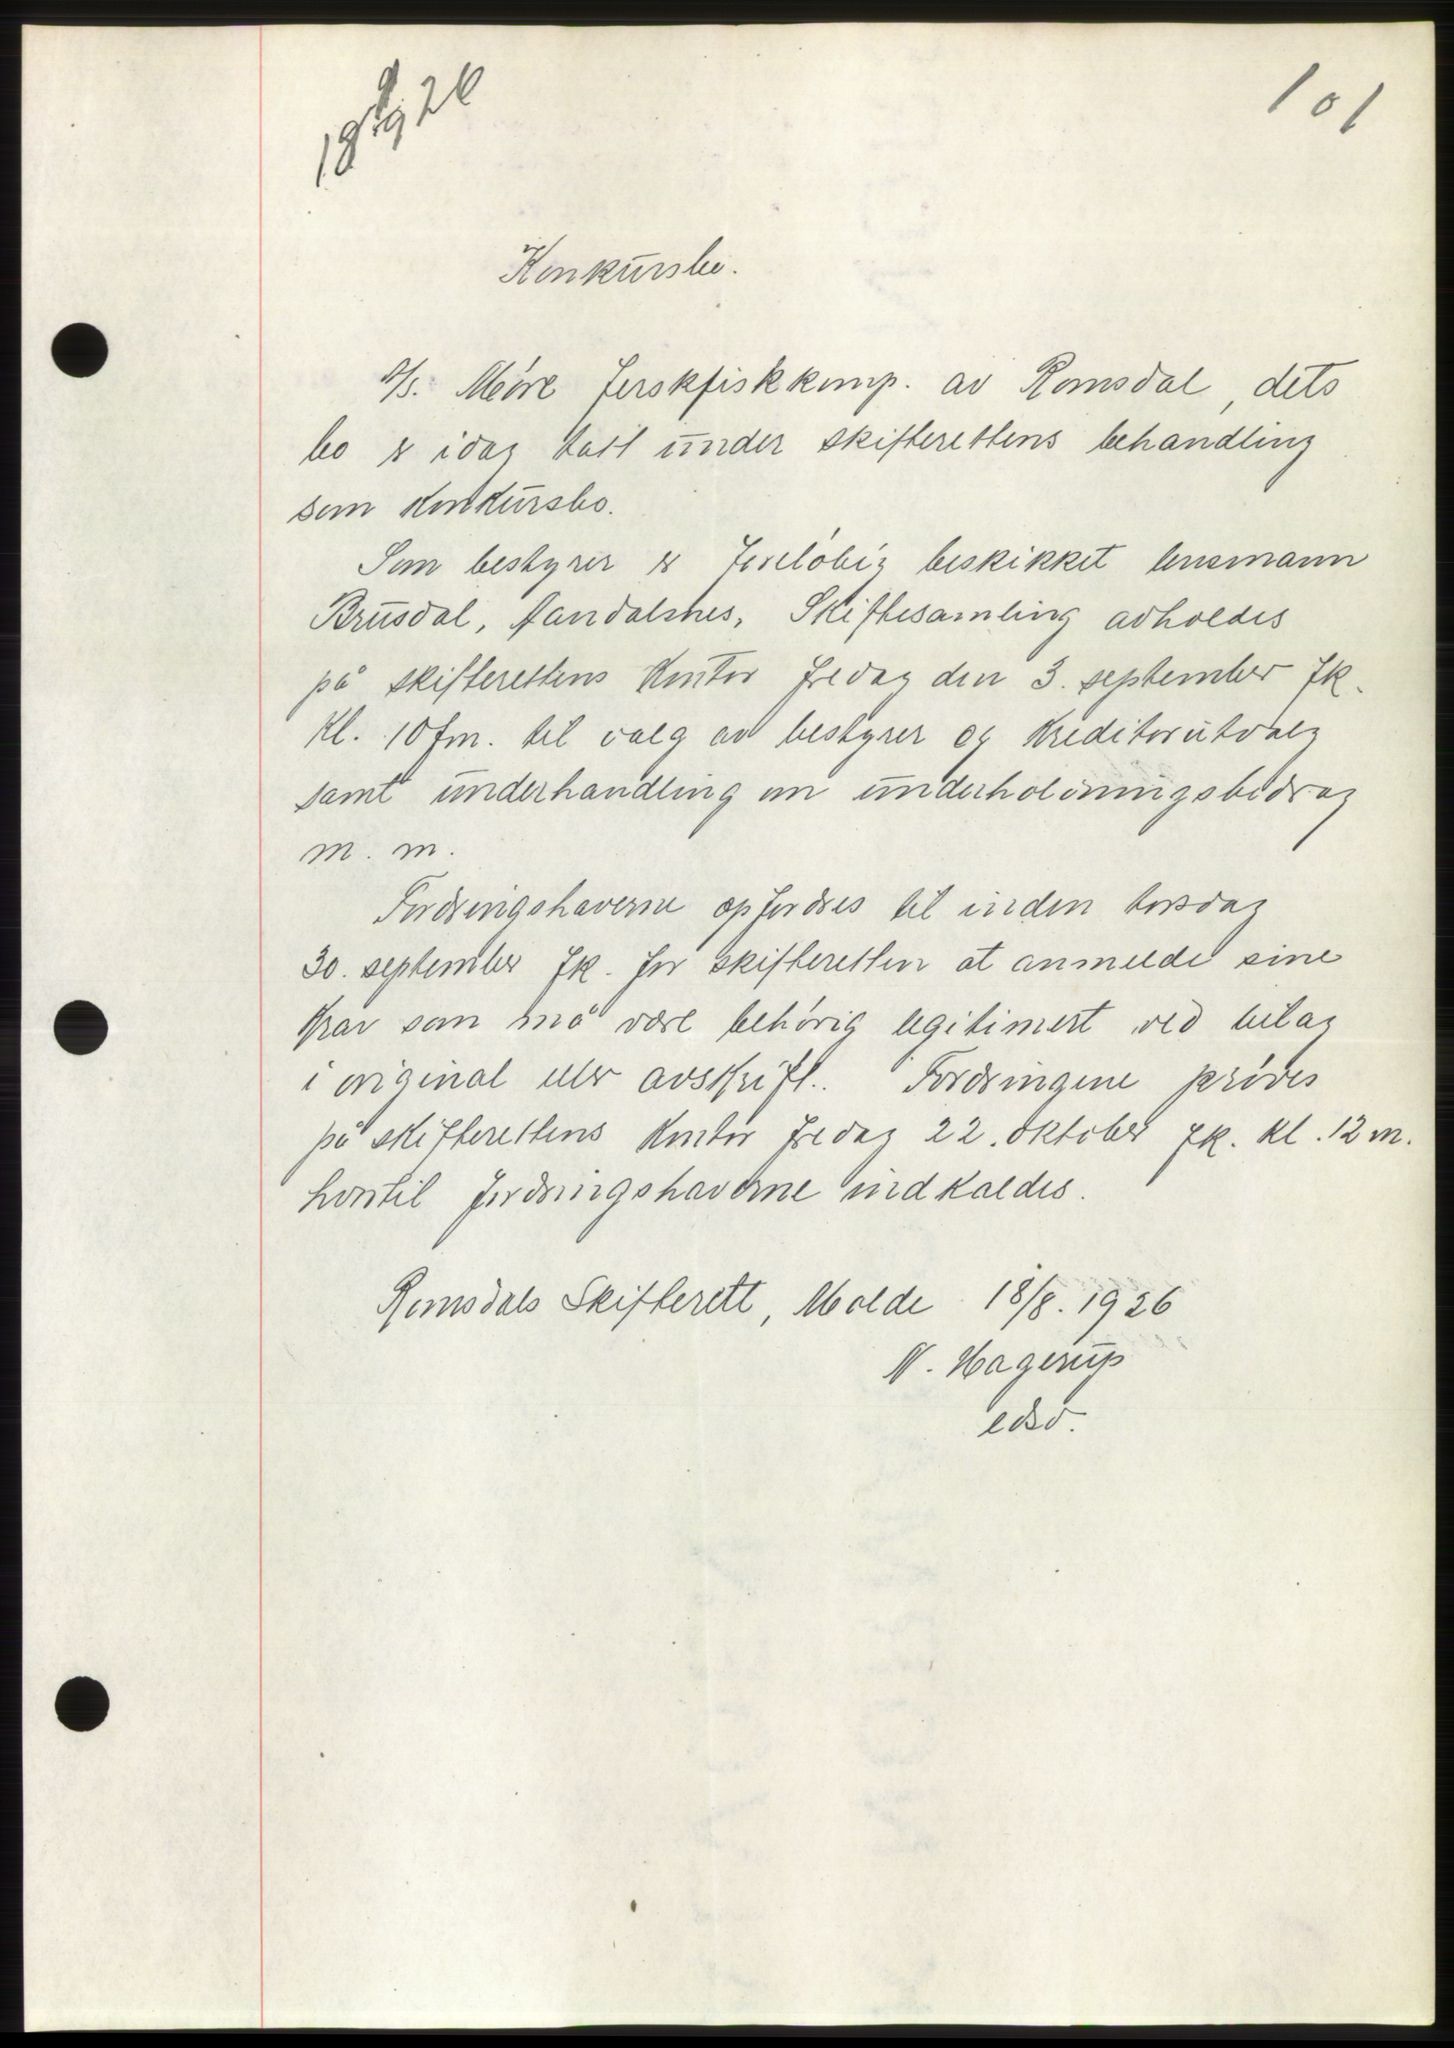 18/8 1926
101
Konkursbo.
A/S. Møre ferskfiskkomp. av Romsdal, dets
bo er idag tatt under skifterettens behandling
som konkursbo.
Som bestyrer er foreløbig beskikket lensmann
Brusdal, Aandalsnes, Skiftesamling avholdes
på skifterettens kontor fredag den 3. september fk.
kl. 10 fm. til valg av bestyrer og kreditorutvalg
samt underhandling om underholdningsbidrag
m. m.
Fordringshaverne opfordres til inden torsdag
30. september fk. for skifteretten at anmelde sine
krav som må være behørig legitimert ved bilag
i original eller avskrift. Fordringene prøves
på skifterettens kontor fredag 22. oktober fk. kl. 12 m.
hvortil fordringshaverne indkaldes.
Romsdals Skifterett, Molde 18/8. 1926
N. Hagerup
edsv.